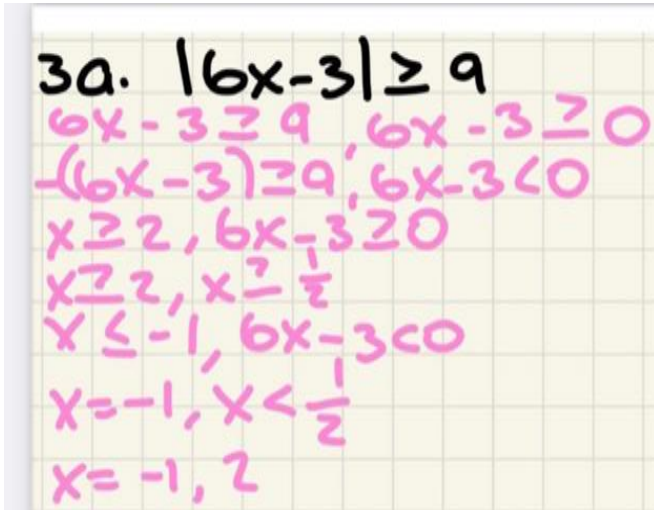 3a. |6x-3| ≥ 9
6x - 3 ≥ 9, 6x - 3 ≥ 0
-(6x-3) ≥ 9, 6x-3 < 0
x ≥ 2, 6x-3 ≥ 0
x ≥ 2, x ≥ 1/2
x ≤ -1, 6x-3 < 0
x = -1, x < 1/2
x = -1, 2